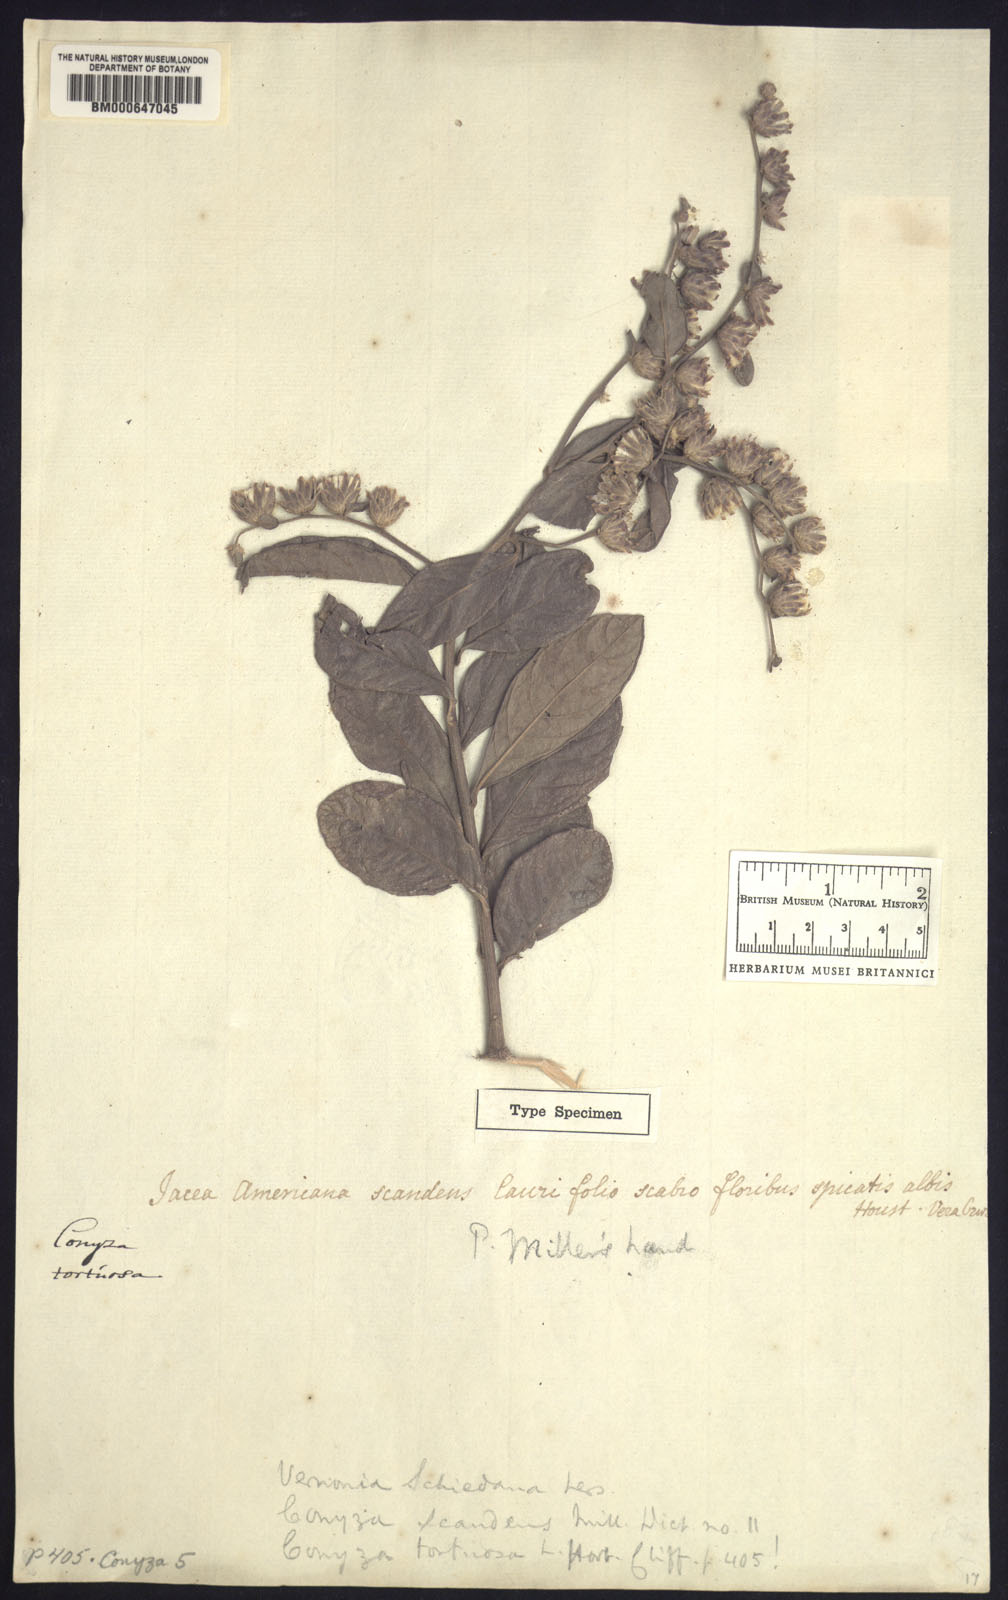 THE NATURAL HISTORY MUSEUM, LONDON
DEPARTMENT OF BOTANY
BM000647045
1 2
BRITISH MUSEUM (NATURAL HISTORY)
1 2 3 4 5
HERBARIUM MUSEI BRITANNICI
Type Specimen
Jacea Americana scandens lauri folio scabro floribus spicatis albis
Houst. Vera Cruz
P. Miller's hand
Conyza
tortuosa
Vernonia Schiedana Less.
Conyza scandens Mill. Dict. no. 11
Conyza tortuosa L. Hort. Cliff. p. 405!
p 405. Conyza 5
17